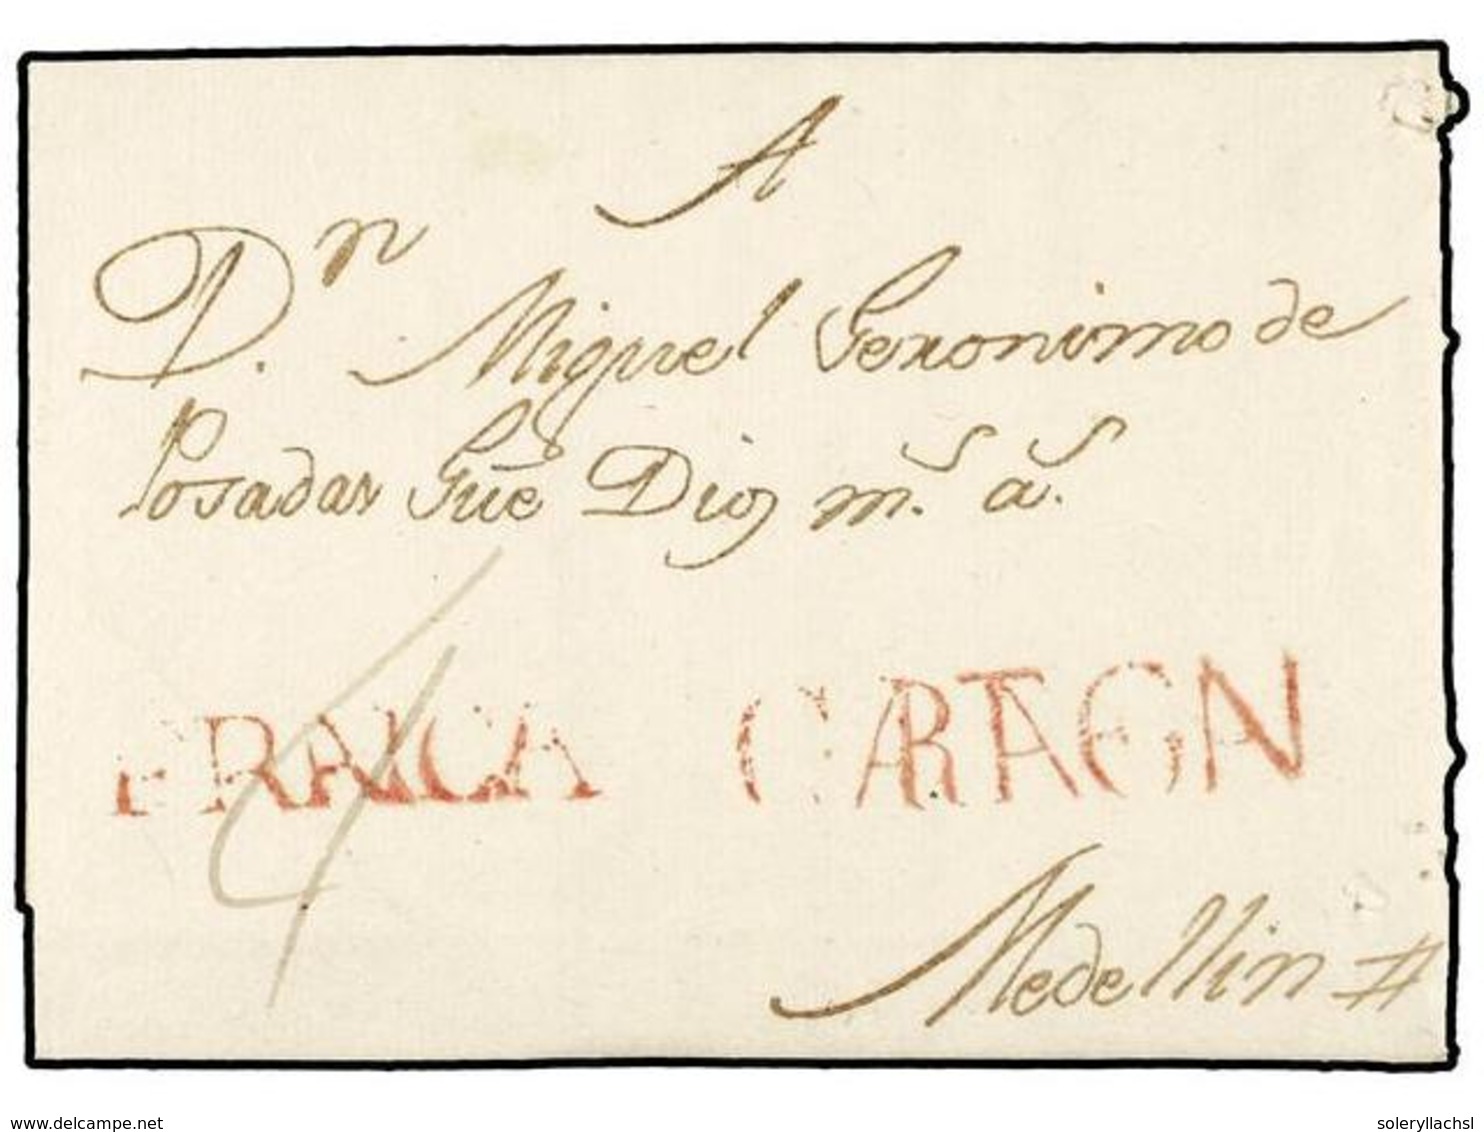 A
Dn. Miguel Geronimo de
Posadas Gũe Dios m.s a.s
4
FRANCA CARTAGENA
Medellin #
delcampe.net
soleryllachsl